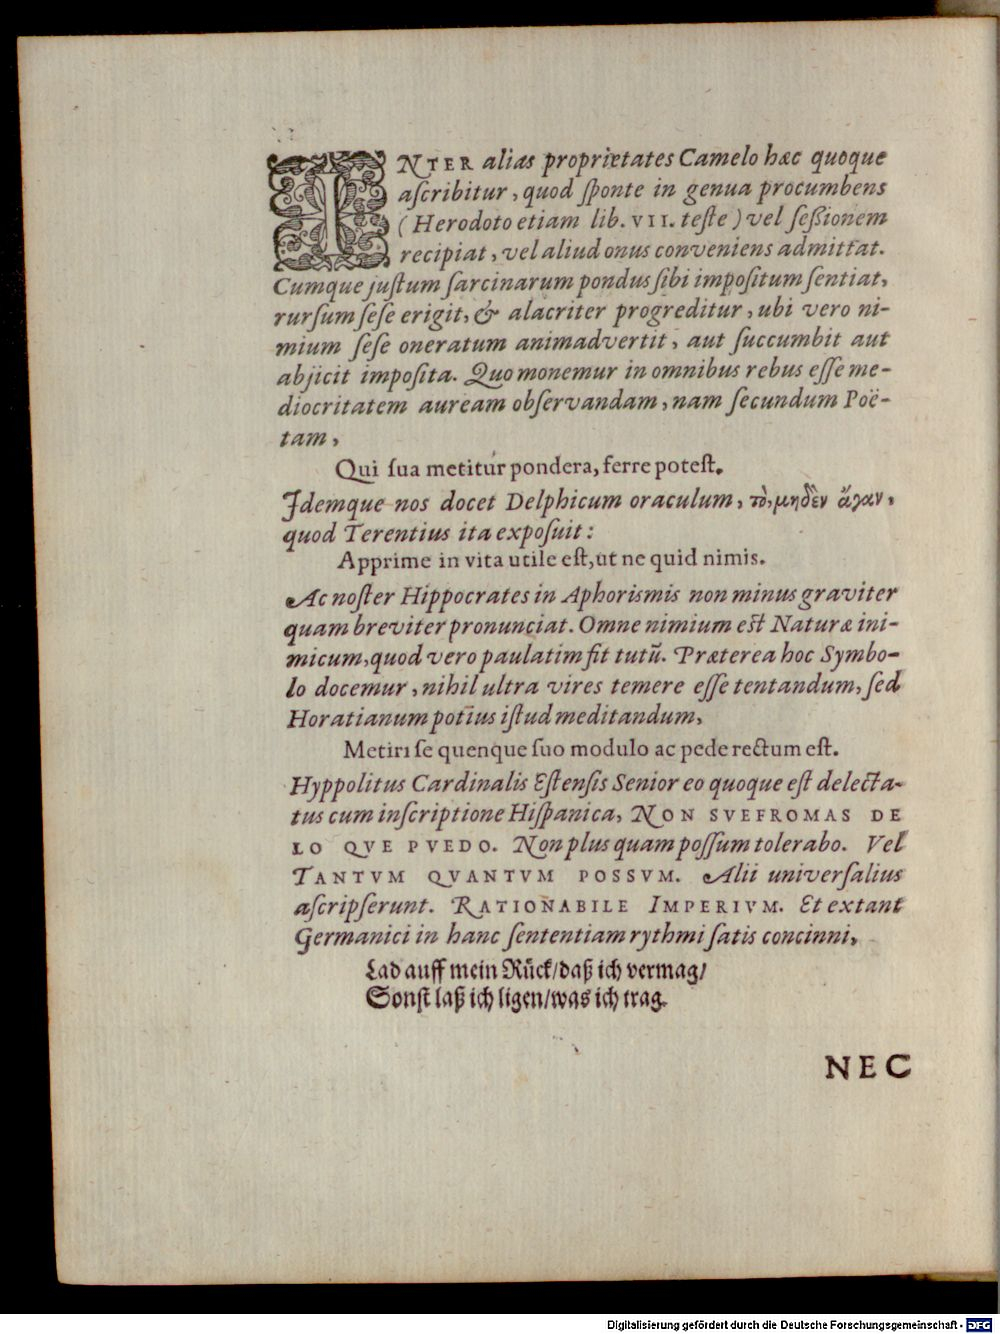 INTER alias proprietates Camelo hæc quoque
aſcribitur, quod ſponte in genua procumbens
(Herodoto etiam lib. VII. teſte) vel ſeßionem
recipiat, vel aliud onus conveniens admittat.
Cumque juſtum ſarcinarum pondus ſibi impoſitum ſentiat,
rurſum ſeſe erigit, & alacriter progreditur, ubi vero ni-
mium ſeſe oneratum animadvertit, aut ſuccumbit aut
abjicit impoſita. Quo monemur in omnibus rebus eſſe me-
diocritatem auream obſervandam, nam ſecundum Poë-
tam,
Qui ſua metitur pondera, ferre poteſt.
Idemque nos docet Delphicum oraculum, τὸ, μηδὲν ἄγαν,
quod Terentius ita expoſuit:
Apprime in vita utile eſt, ut ne quid nimis.
Ac noſter Hippocrates in Aphorismis non minus graviter
quam breviter pronunciat. Omne nimium eſt Naturæ ini-
micum, quod vero paulatim fit tutũ. Præterea hoc Symbo-
lo docemur, nihil ultra vires temere eſſe tentandum, ſed
Horatianum potius iſtud meditandum,
Metiri ſe quenque ſuo modulo ac pede rectum eſt.
Hyppolitus Cardinalis Eſtenſis Senior eo quoque eſt delecta-
tus cum inſcriptione Hiſpanica, NON SVEFROMAS DE
LO QVE PVEDO. Non plus quam poſſum tolerabo. Vel
TANTVM QVANTVM POSSVM. Alii univerſalius
aſcripſerunt. RATIONABILE IMPERIVM. Et extant
Germanici in hanc ſententiam rythmi ſatis concinni,
Lad auff mein Rück/daß ich vermag/
Sonſt laß ich ligen/was ich trag.
NEC
Digitalisierung gefördert durch die Deutsche Forschungsgemeinschaft - DFG